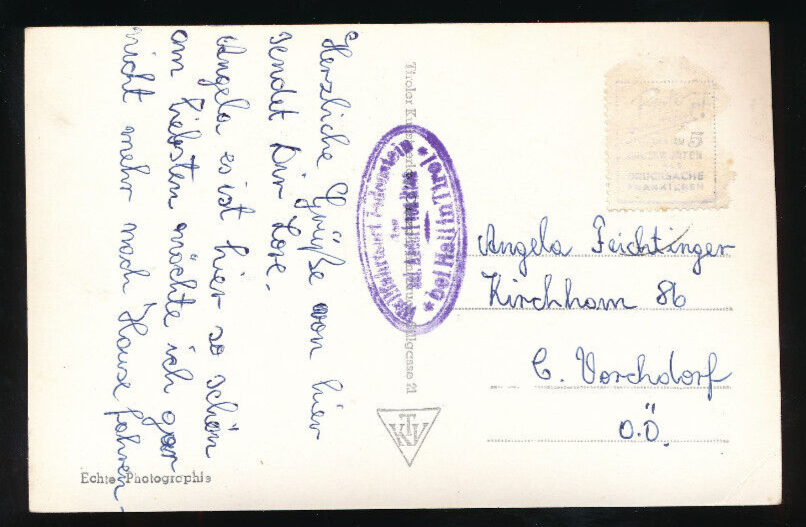 Herzliche Grüße von hier
sendet Dir Lore.
Angela es ist hier so schön
am liebsten möchte ich gar
nicht mehr nach Hause fahren.
Angela Feichtinger
Kirchham 86
b. Vorchdorf
O.Ö.
Tiroler 21
bei Hall in Tirol
5
DRUCKSACHE
FRANKIEREN
TKV
Echte Photographie